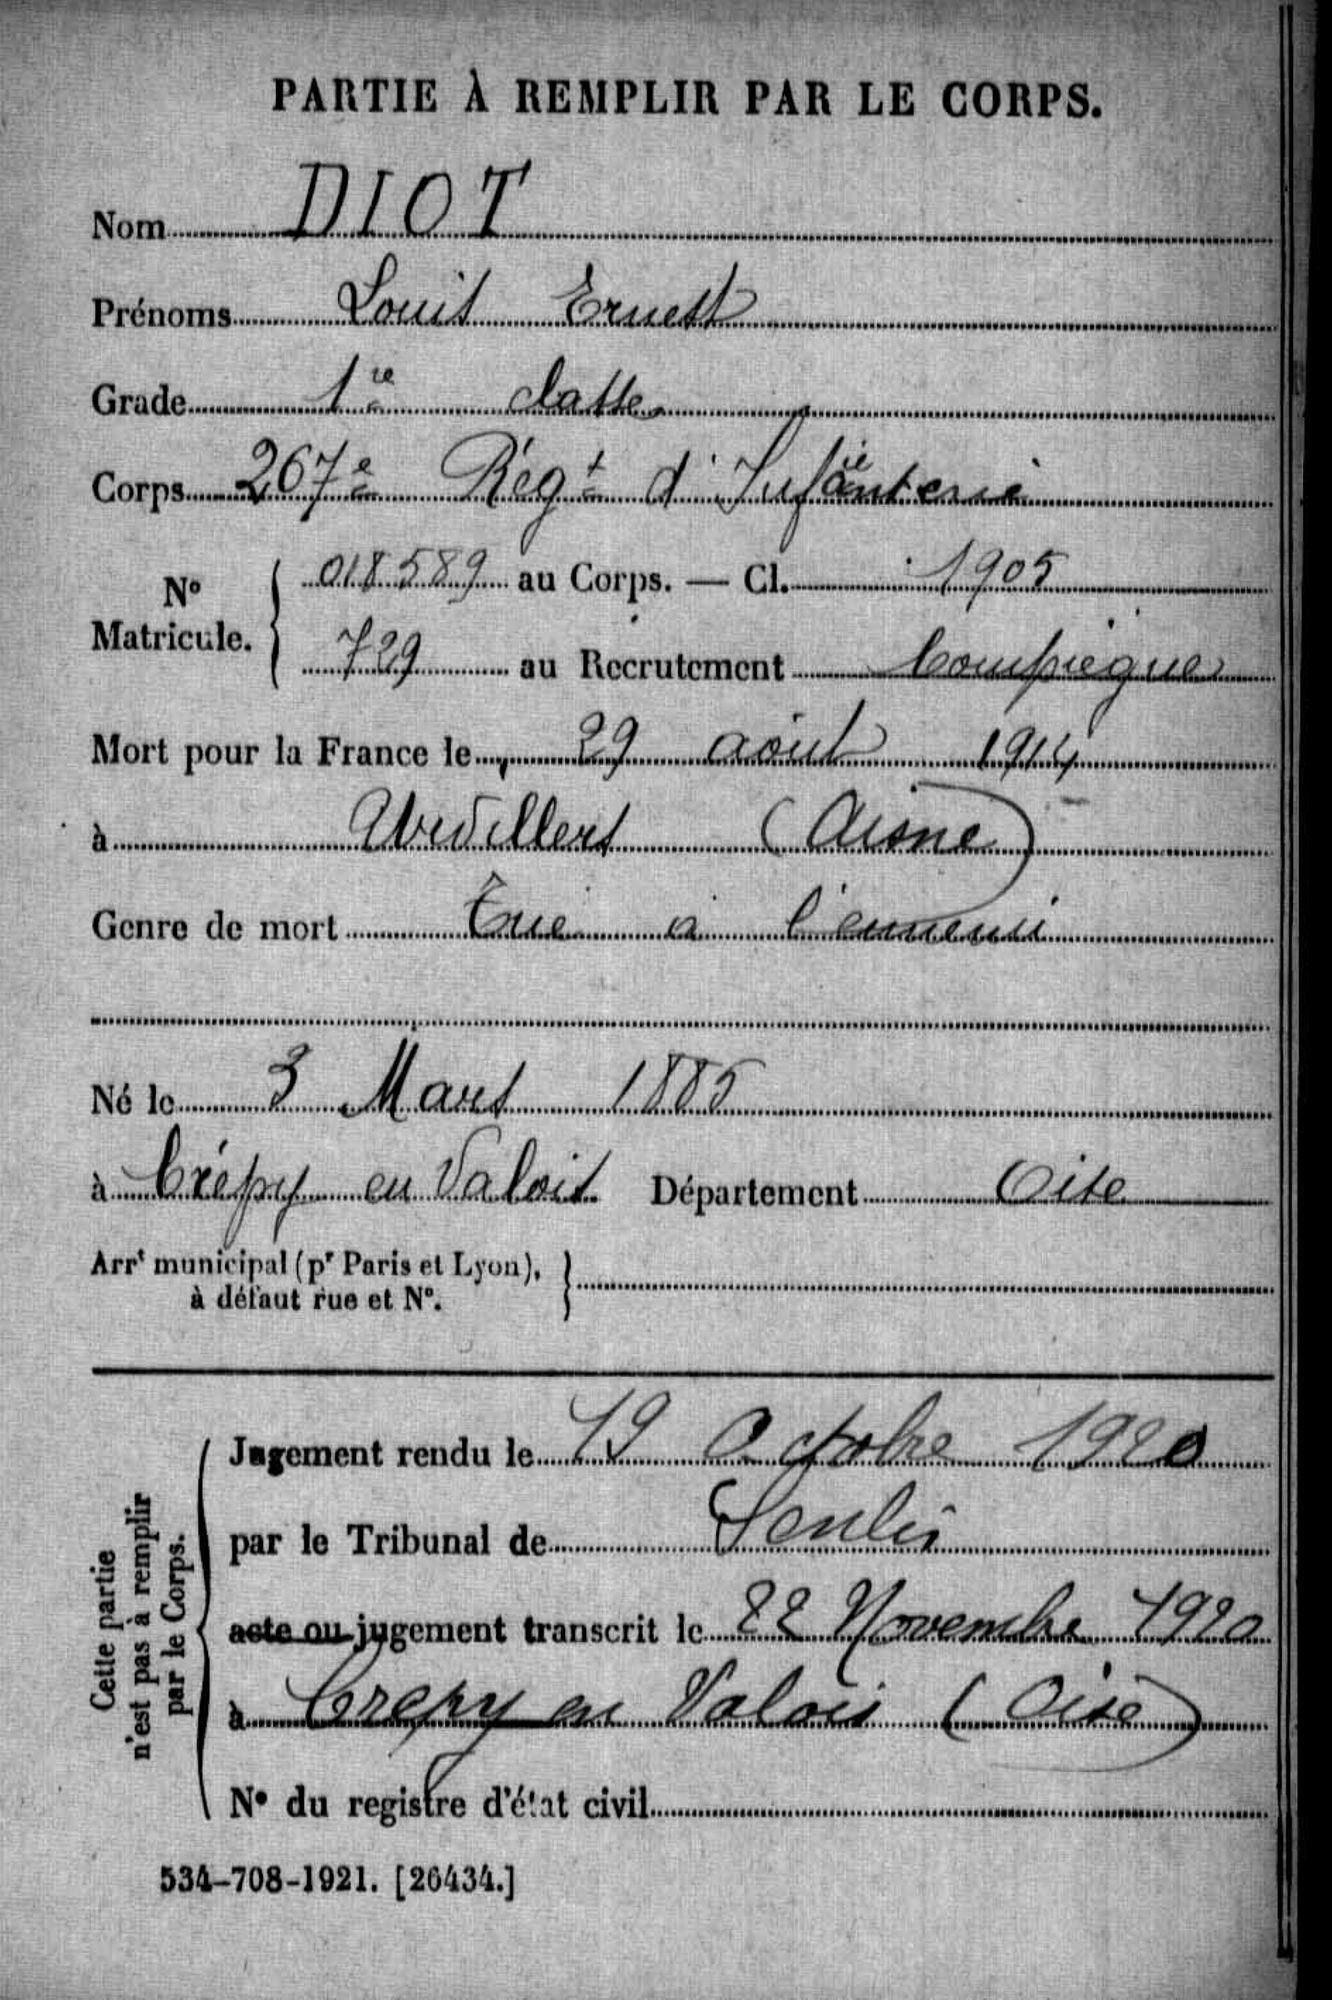 PARTIE À REMPLIR PAR LE CORPS.
Nom DIOT
Prénoms Louis Ernest
Grade 1re classe
Corps 267e Régt d'Infanterie
No Matricule. 018589 au Corps. — Cl. 1905
729 au Recrutement Compiègne
Mort pour la France le 29 août 1914
à Urvillers (Aisne)
Genre de mort Tué à l'ennemi
Né le 3 Mars 1885
à Crépy en Valois Département Oise
Arrt municipal (pr Paris et Lyon),
à défaut rue et No.
Cette partie
n'est pas à remplir
par le Corps.
Jugement rendu le 19 Octobre 1920
par le Tribunal de Senlis
acte ou jugement transcrit le 22 Novembre 1920
à Crepy en Valois (Oise)
No du registre d'état civil
534-708-1921. [26434.]